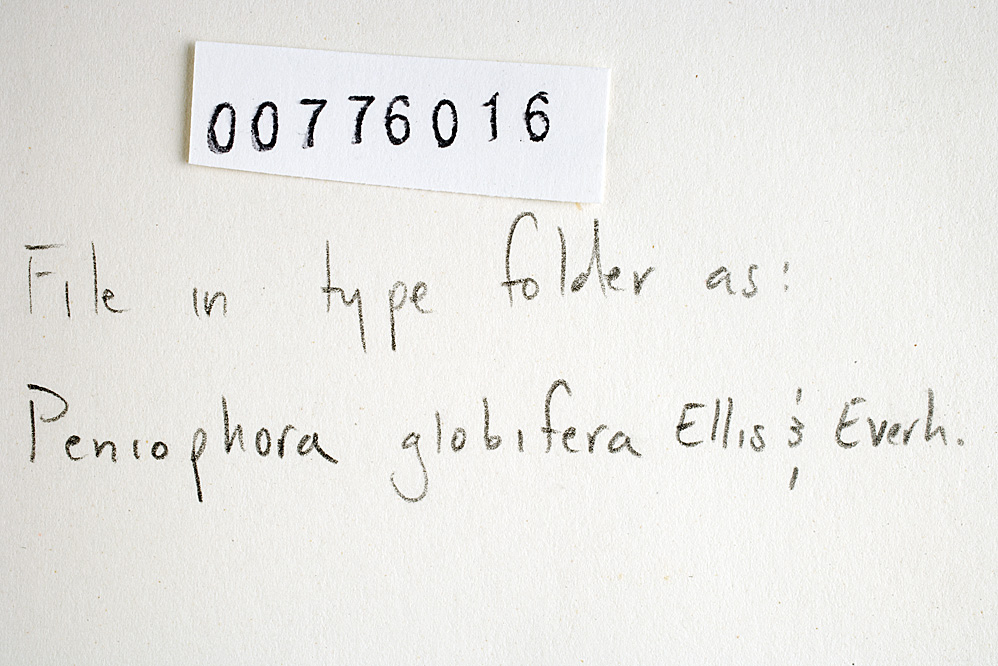 00776016
File in type folder as:
Peniophora globifera Ellis & Everh.